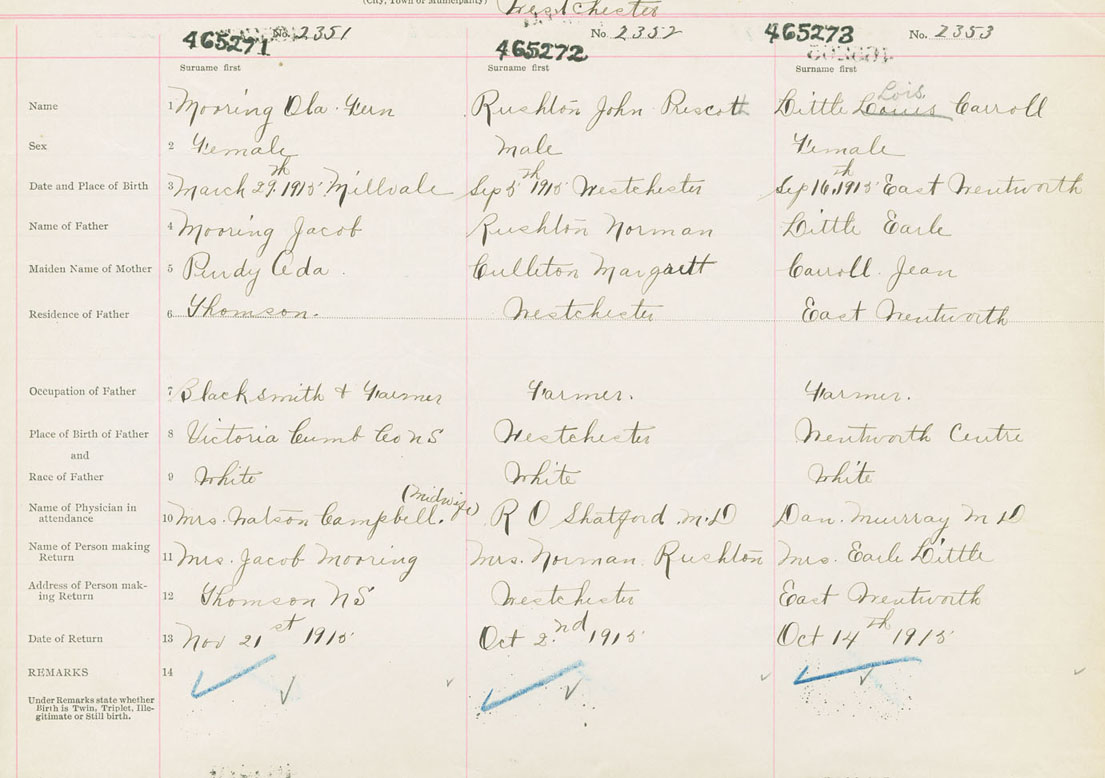 (City, Town or Municipality) Westchester
465271 No. 2351 465272 No 2352 465273 No. 2353
Surname first Surname first Surname first
Name 1 Mooring Ola Fern Rushton John Prescott Little Louis Lois Carroll
Sex 2 Female Male Female
Date and Place of Birth 3 March 29th 1915 Millvale Sep 5th 1915 Westchester Sep 16th 1915 East Wentworth
Name of Father 4 Mooring Jacob Rushton Norman Little Earle
Maiden Name of Mother 5 Purdy Ada. Culleton Margarett Carroll Jean
Residence of Father 6 Thomson. Westchester East Wentworth
Occupation of Father 7 Blacksmith + Farmer Farmer. Farmer.
Place of Birth of Father 8 Victoria Cumb Co NS Westchester Wentworth Centre
and
Race of Father 9 White White White
Name of Physician in (Midwife)
attendance 10 Mrs. Watson Campbell. R O Shatford M.D Dan. Murray M D
Name of Person making
Return 11 Mrs. Jacob Mooring Mrs. Norman Rushton Mrs. Earle Little
Address of Person mak-
ing Return 12 Thomson NS Westchester East Wentworth
Date of Return 13 Nov 21st 1915 Oct 2nd 1915 Oct 14th 1915
REMARKS 14
Under Remarks state whether
Birth is Twin, Triplet, Ille-
gitimate or Still birth.